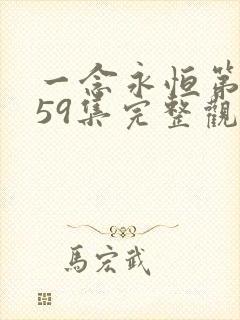 一念永恒第
59集完整觀
馬宏武